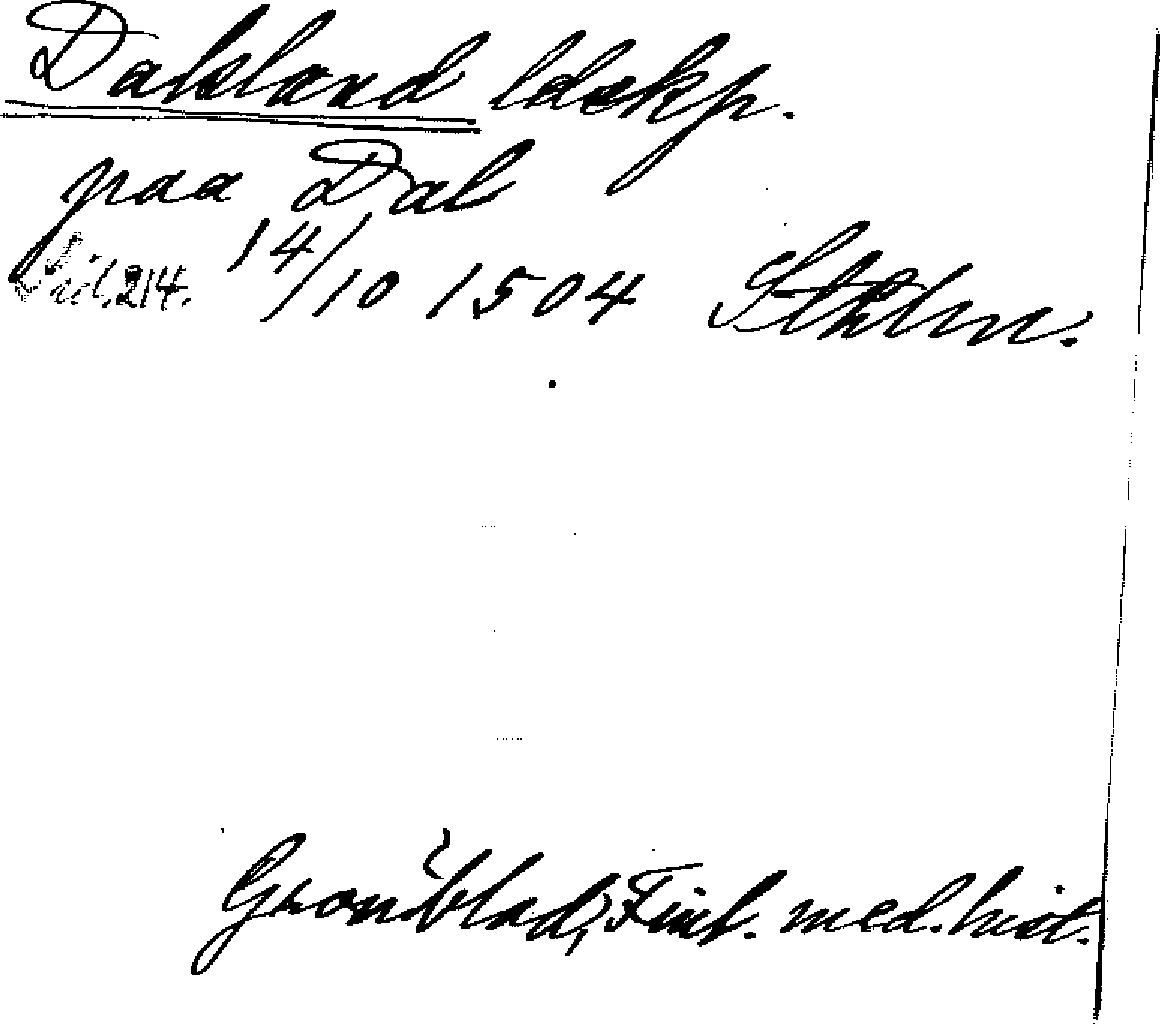 Dalsland ldskp.
paa Dal
Sid. 214. 14/10 1504 Sthlm.
Grönblad, Finl. med. hist.